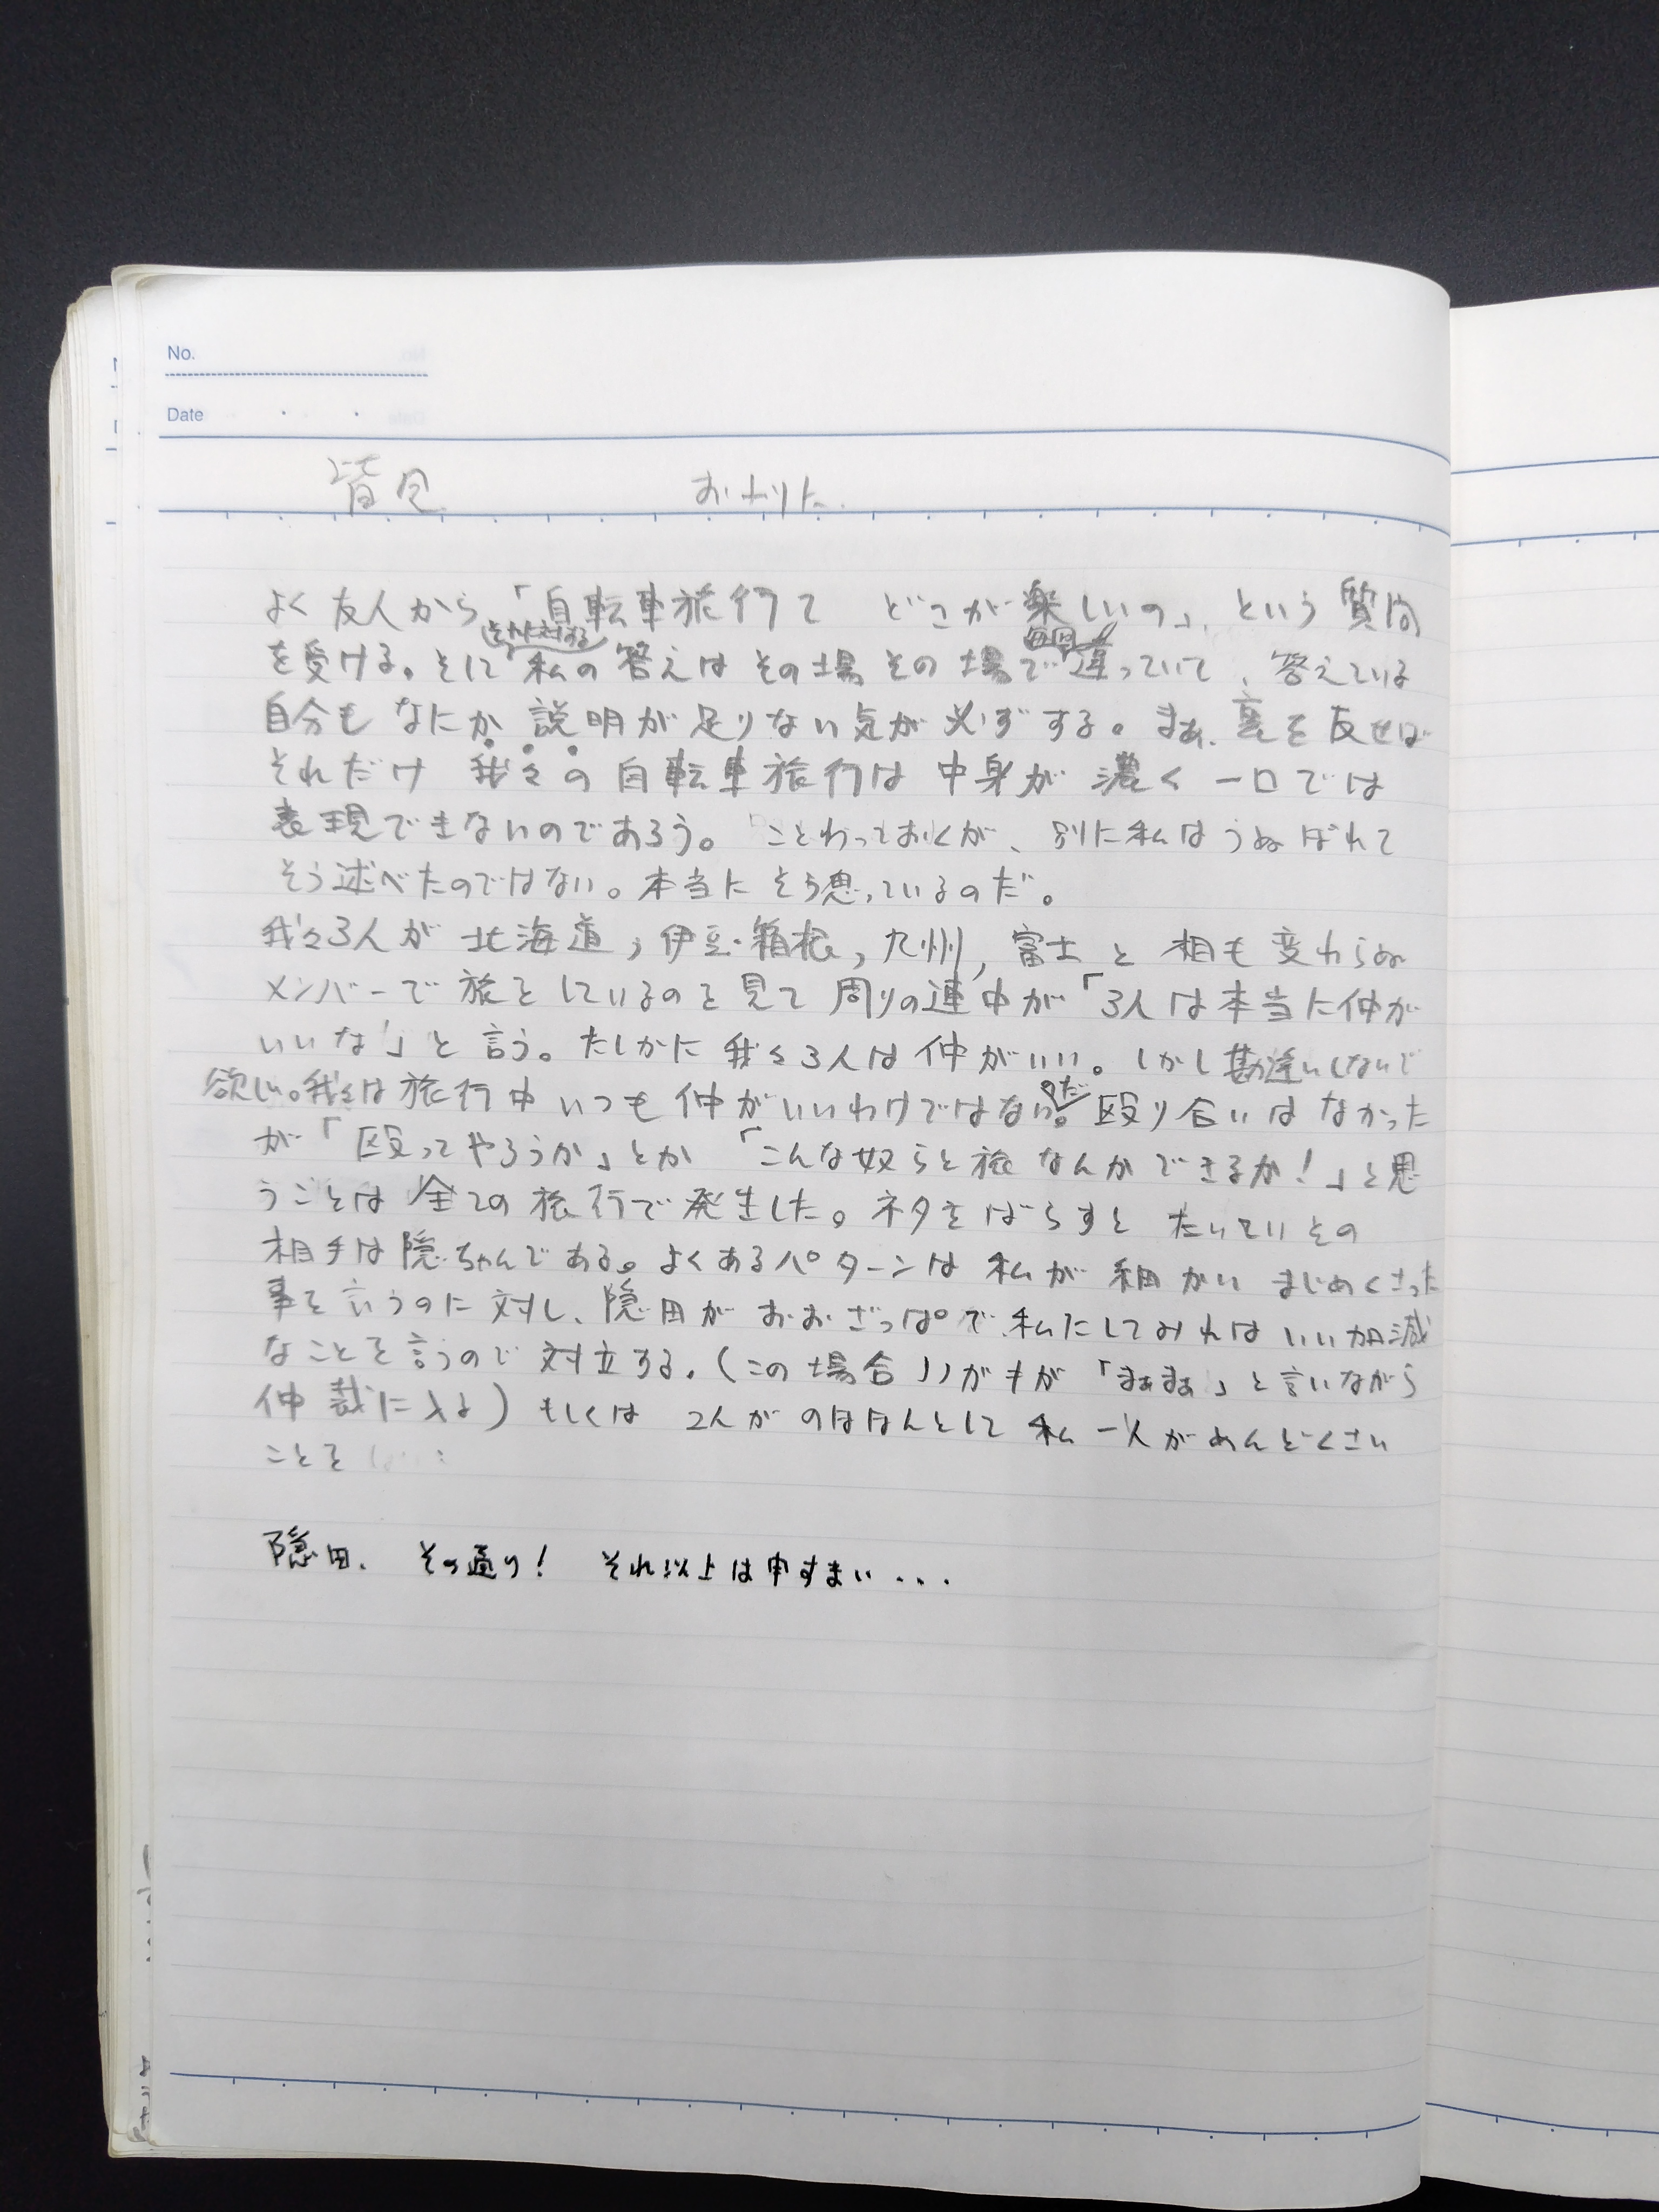 No.
Date
皆見 おわりに.
よく友人から「自転車旅行て どこが楽しいの」、という質問
を受ける。それに対する私の答えは その場その場で毎回違っていて、答えている
自分も なにか 説明が足りない気が必ずする。まぁ、裏を反せば
それだけ 我々の自転車旅行は 中身が 濃く 一口では
表現できないのであろう。 ことわっておくが、別に私はうぬぼれて
そう述べたのではない。本当に そう思っているのだ。
我々3人が 北海道, 伊豆・箱根, 九州, 富士 と 相も変わらぬ
メンバーで旅をしているのを見て 周りの連中が「3人は本当に仲が
いいな」と言う。たしかに 我々3人は 仲がいい。しかし勘違いしないで
欲しい。我々は 旅行中 いつも 仲がいいわけではないのだ。殴り合いは なかった
が「殴ってやろうか」とか 「こんな奴らと旅なんかできるか!」と思
うことは 全ての旅行で発生した。ネタをばらすと たいていその
相手は隠ちゃんである。よくあるパターンは 私が 細かい まじめくさった
事を言うのに対し、隠田が おおざっぱで 私にしてみれば いい加減
なことを言うので 対立する。(この場合 リがもが 「まぁまぁ」と言いながら
仲裁に入る) もしくは 2人が のほほんとして 私一人が めんどくさい
ことを
隠田、 その通り! それ以上は申すまい...